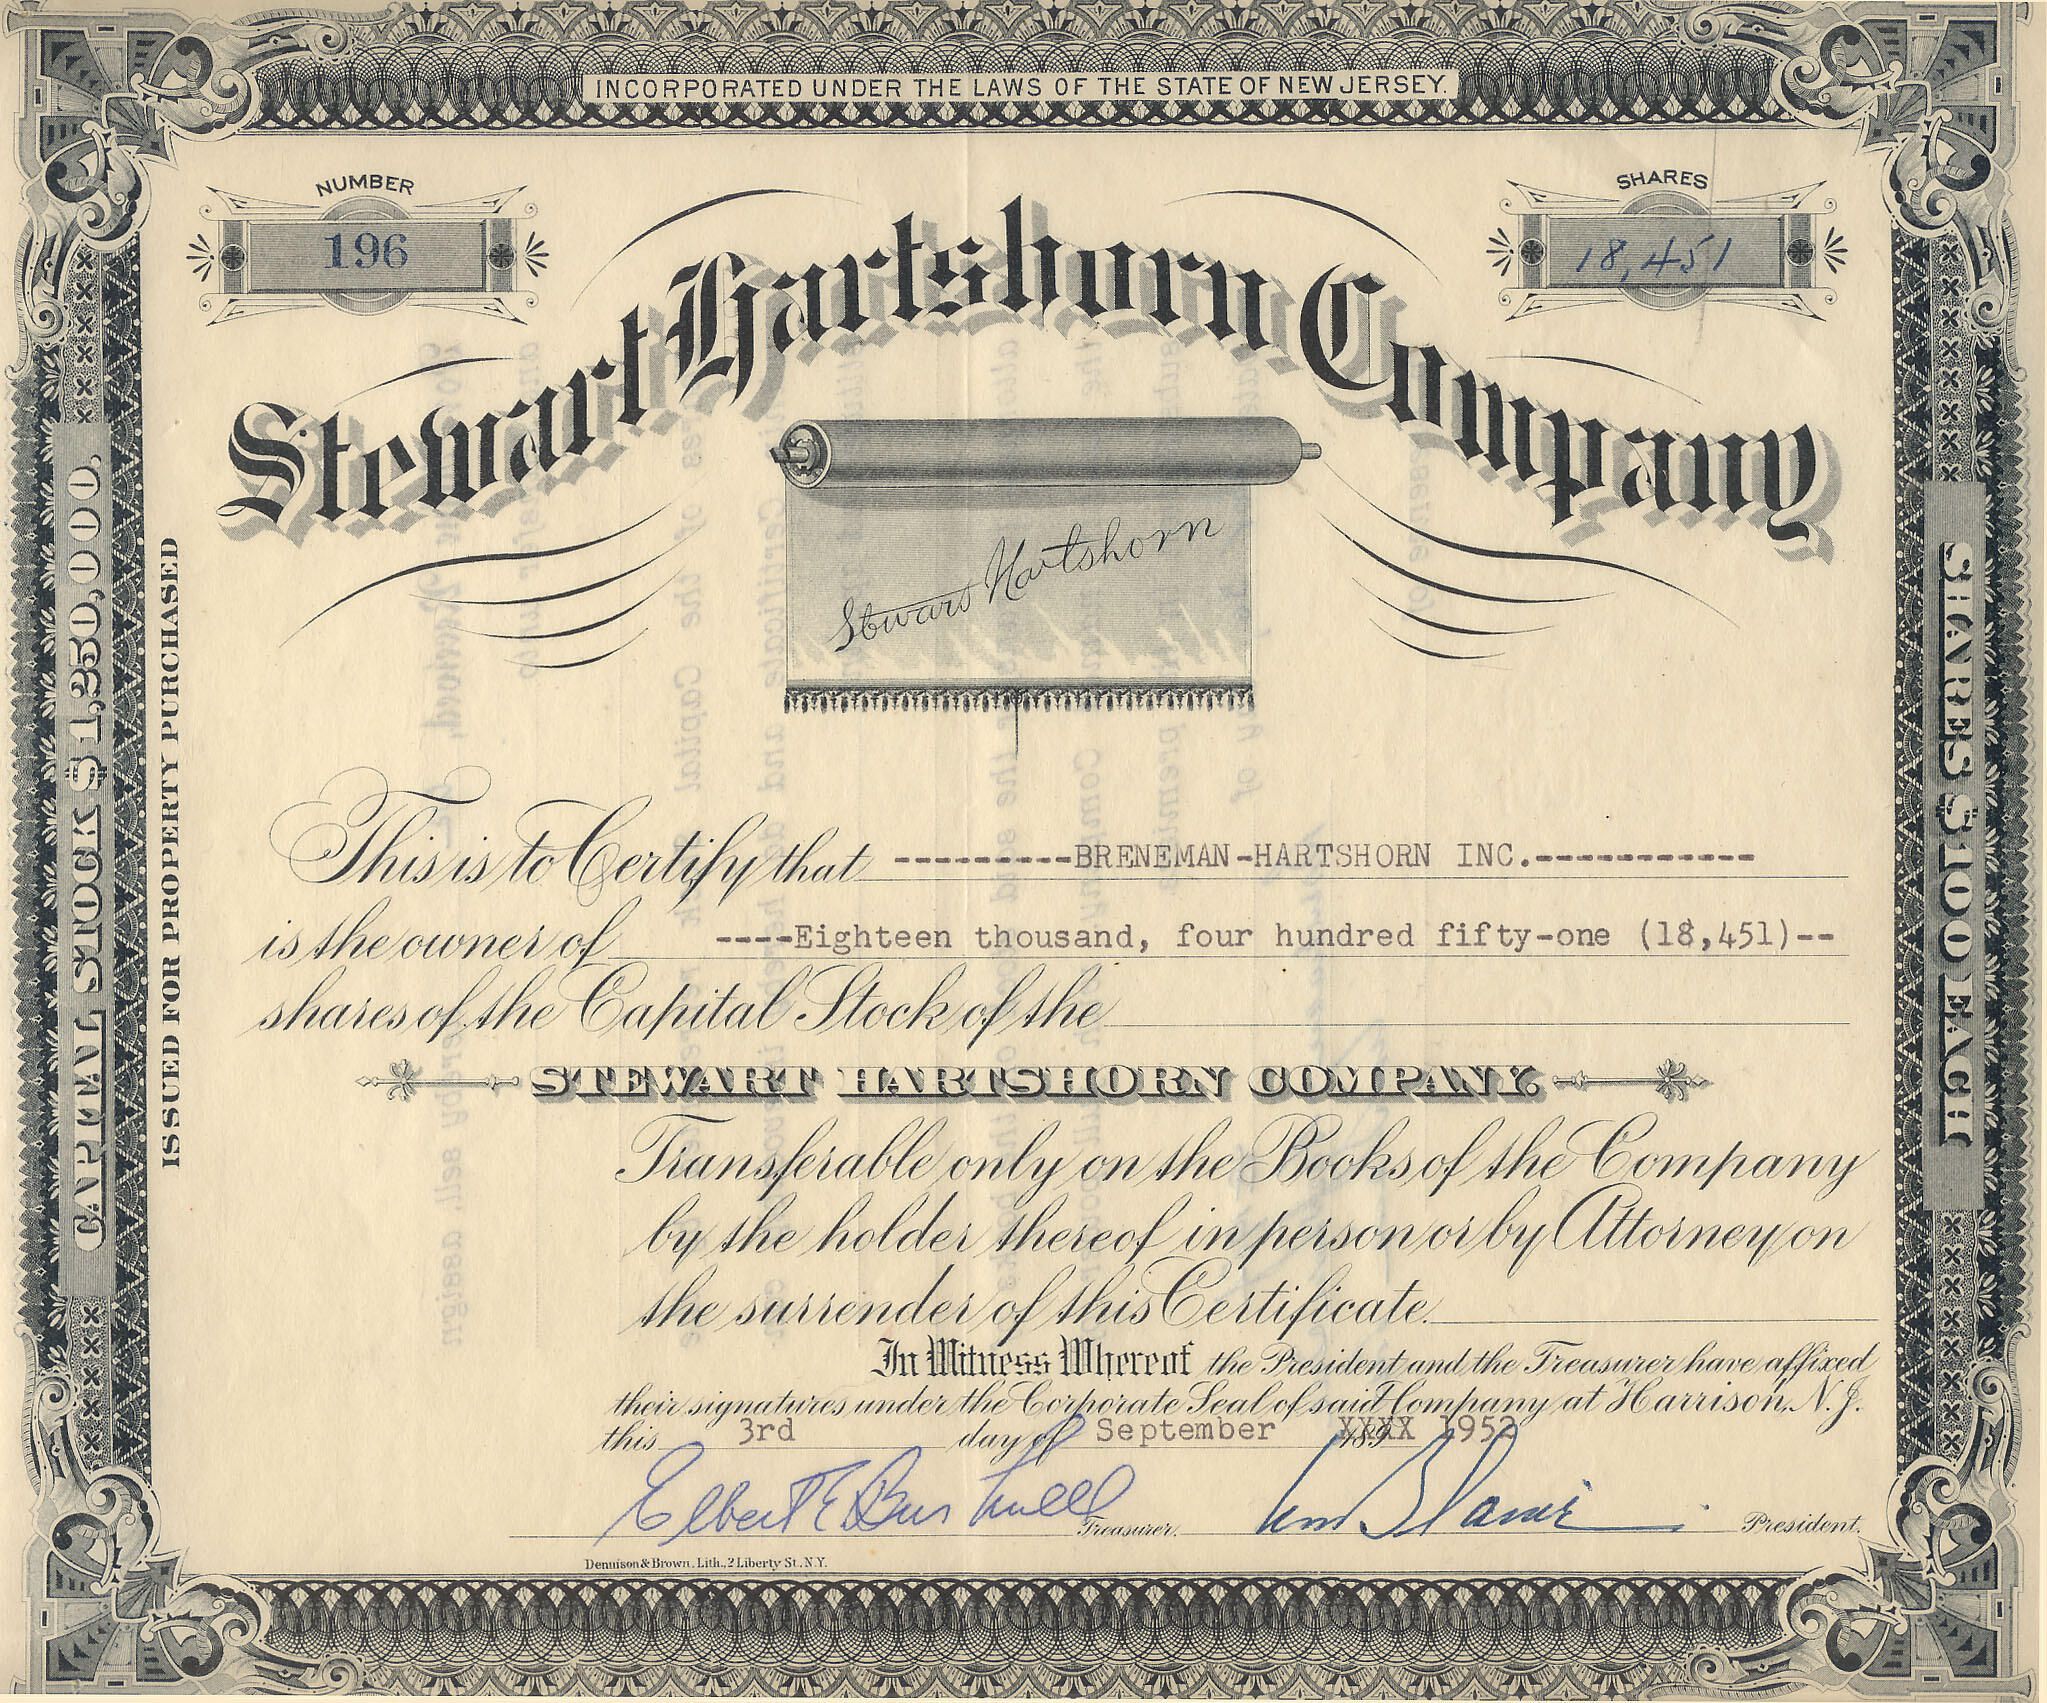 INCORPORATED UNDER THE LAWS OF THE STATE OF NEW JERSEY.
NUMBER
196
SHARES
18,451
Stewart Hartshorn Company
Stewart Hartshorn
CAPITAL STOCK $1,250,000.
ISSUED FOR PROPERTY PURCHASED
SHARES $100 EACH
This is to Certify that ---------BRENEMAN-HARTSHORN INC.-----------
is the owner of ----Eighteen thousand, four hundred fifty-one (18,451)--
shares of the Capital Stock of the
STEWART HARTSHORN COMPANY.
Transferable only on the Books of the Company
by the holder thereof in person or by Attorney on
the surrender of this Certificate.
In Witness Whereof the President and the Treasurer have affixed
their signatures under the Corporate Seal of said Company at Harrison, N.J.
this 3rd day of September 189 XXXX 1952
Elbert E Bushnell Treasurer. President.
Dennison & Brown, Lith., 2 Liberty St., N.Y.